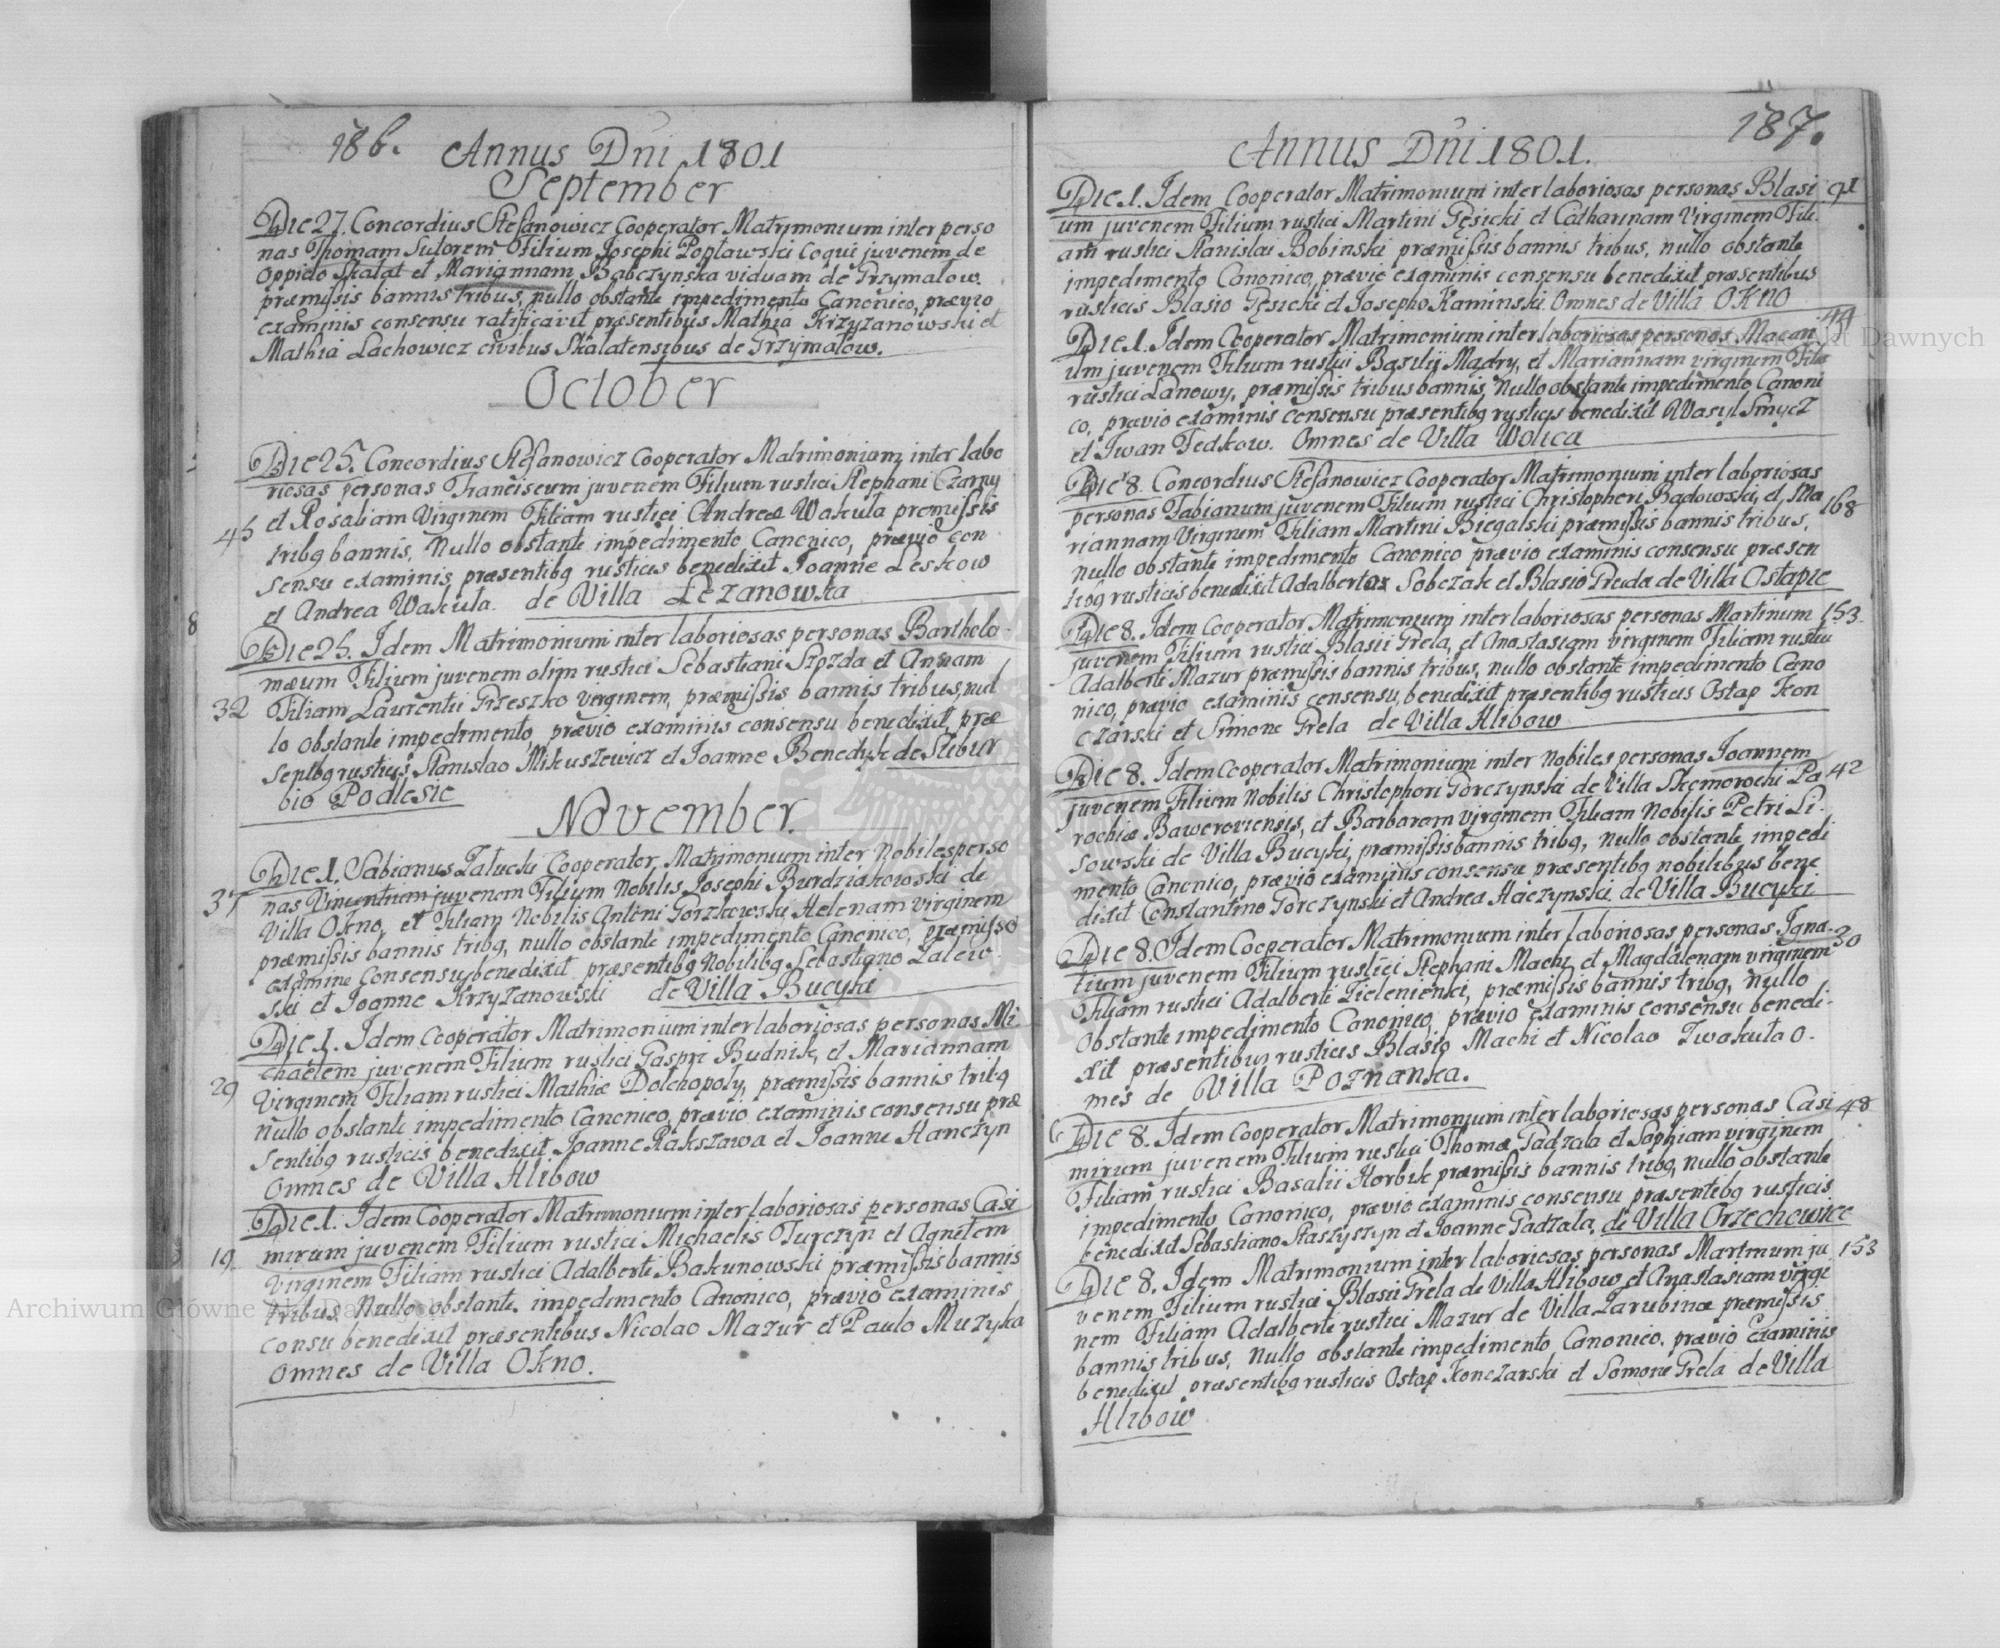 186.
Annus Dni 1801
September
Die 27. Concordius Stefanowicz Cooperator Matrimonium inter perso
nas Thomam Sutorem Filium Josephi Popławski Coqui juvenem de
Oppido Skałat et Mariannam Bąbczynska viduam de Grzymałow.
præmissis bannis tribus, nullo obstante impedimento Canonico, prævio
examinis consensu ratificavit præsentibus Mathia Krzyżanowski et
Mathia Lachowicz civibus Skalatensibus de Grzymałow.
October
Die 25. Concordius Stefanowicz Cooperator Matrimonium inter labo
riosas personas Franciscum juvenem Filium rustici Stephani Czarny
et Rosaliam Virginem Filiam rustici Andreæ Wakuła premissis
45
tribq bannis, Nullo obstante impedimento Canonico, prævio con
sensu examinis præsentibq rusticis benedixit Joanne Leskow
et Andrea Wakuła. de Villa Lezanowka
8
Die 25. Idem Matrimonium inter laboriosas personas Bartholo-
mæum Filium juvenem olim rustici Sebastiani Szozda et Annam
32 Filiam Laurentii Grzeszko virginem, præmissis bannis tribus, nul
lo obstante impedimento, prævio examinis consensu benedixit, præ
sentbq rusticis Stanislao Mikuszewicz et Joanne Benedyk de Stibur
bio Podlesie
November.
Die 1. Fabianus Załucki Cooperator Matrimonium inter Nobiles perso
37 nas Vincentium juvenem Filium Nobilis Josephi Burdziakowski de
Villa Okno, et Filiam Nobilis Antoni Gorzkowski Helenam virginem
præmissis bannis tribq, nullo obstante impedimento Canonico, præmisso
examine Consensu benedixit præsentibq Nobilibq Sebastiano Zalew
ski et Joanne Krzyżanowski de Villa Bucyki
Die 1. Idem Cooperator Matrimonium inter laboriosas personas Mi
chaelem juvenem Filium rustici Gaspri Budnik, et Mariannam
29 Virginem Filiam rustici Mathiæ Dołchopoły, præmissis bannis tribq
Nullo obstante impedimento Canonico, prævio examinis consensu præ
sentibq rusticis benedixit Joanne Rakszawa et Joanne Hanczyn
Omnes de Villa Hlibow
Die 1. Idem Cooperator Matrimonium inter laboriosas personas Casi
mirum juvenem Filium rustici Michaelis Turczyn et Agnetem
19 Virginem Filiam rustici Adalberti Bakunowski præmissis bannis
tribus, Nullo obstante impedimento Canonico, prævio examinis
consu benedixit præsentibus Nicolao Mazur et Paulo Muzyka
Omnes de Villa Okno.
187.
Annus Dni 1801.
Die 1. Idem Cooperator Matrimonium inter laboriosas personas Blasi 91
um juvenem Filium rustici Martini Gęsicki et Catharinam Virginem Fili-
am rustici Stanislai Bobinski præmissis bannis tribus, nullo obstante
impedimento Canonico, prævio examinis consensu benedixit præsentibus
rusticis Blasio Gęsicki et Josepho Kaminski. Omnes de Villa OKNO
Die 1. Idem Cooperator Matrimonium inter laboriosas personas Macari 44
um juvenem Filium rustici Bazilii Mądry, et Mariannam virginem Filia
rustici Łanowy, præmissis tribus bannis, Nullo obstante impedimento Canoni
co, prævio examinis consensu præsentibq rusticis benedixit Wasyl Smycz
et Iwan Fedkow. Omnes de Villa Wolica
Die 8. Concordius Stefanowicz Cooperator Matrimonium inter laboriosas
personas Fabianum juvenem Filium rustici Christopheri Bądowski, et Ma 168
riannam Virginem Filiam Martini Biegalski præmissis bannis tribus,
nullo obstante impedimento Canonico prævio examinis consensu præsen
tibq rusticis benedixit Adalberto Sobczak et Blasio Pruda de Villa Ostapie
Die 8. Idem Cooperator Matrimonium inter laboriosas personas Martinum 153
juvenem Filium rustici Blasii Grela, et Anastasiam virginem Filiam rustici
Adalberti Mazur præmissis bannis tribus, nullo obstante impedimento Cano
nico, prævio examinis consensu, benedixit præsentibq rusticis Ostap Kon
czarski et Simone Grela de Villa Hlibow
Die 8. Idem Cooperator Matrimonium inter Nobiles personas Joannem
juvenem Filium Nobilis Christophori Gorczynski de Villa Skomorochi Pa 42
rochiæ Baworoviensis, et Barbaram virginem Filiam Nobilis Petri Li-
sowski de Villa Bucyki, præmissis bannis tribq, nullo obstante impedi
mento Canonico, prævio examinis consensu præsentibq nobilibus bene
dixit Constantino Gorczynski et Andrea Haczynski de Villa Bucyki
Die 8. Idem Cooperator Matrimonium inter laboriosas personas Igna- 30
tium juvenem Filium rustici Stephani Machi et Magdalenam virginem
Filiam rustici Adalberti Zielenienki, præmissis bannis tribq, nullo
obstante impedimento Canonico, prævio examinis consensu benedi-
xit præsentibus rusticis Blasio Machi et Nicolao Iwakuta o-
mes de Villa Poznanka.
Die 8. Idem Cooperator Matrimonium inter laboriosas personas Casi 48
mirum juvenem Filium rustici Thomæ Gadzala et Sophiam virginem
Filiam rustici Basalii Horbik præmissis bannis tribq, nullo obstante
impedimento Canonico, prævio examinis consensu præsentibq rusticis
benedixit Sebastiano Staszyszyn et Joanne Gadzala. de Villa Orzechowice
Die 8. Idem Matrimonium inter laboriosas personas Martinum ju 153
venem Filium rustici Blasii Grela de Villa Hlibow et Anastasiam virgi
nem Filiam Adalberti rustici Mazur de Villa Zarubinæ præmissis
bannis tribus, Nullo obstante impedimento Canonico, prævio examinis
benedixit præsentibq rusticis Ostap Konczarski et Somone Grela de Villa
Hlibow
Archiwum Główne Akt Dawnych